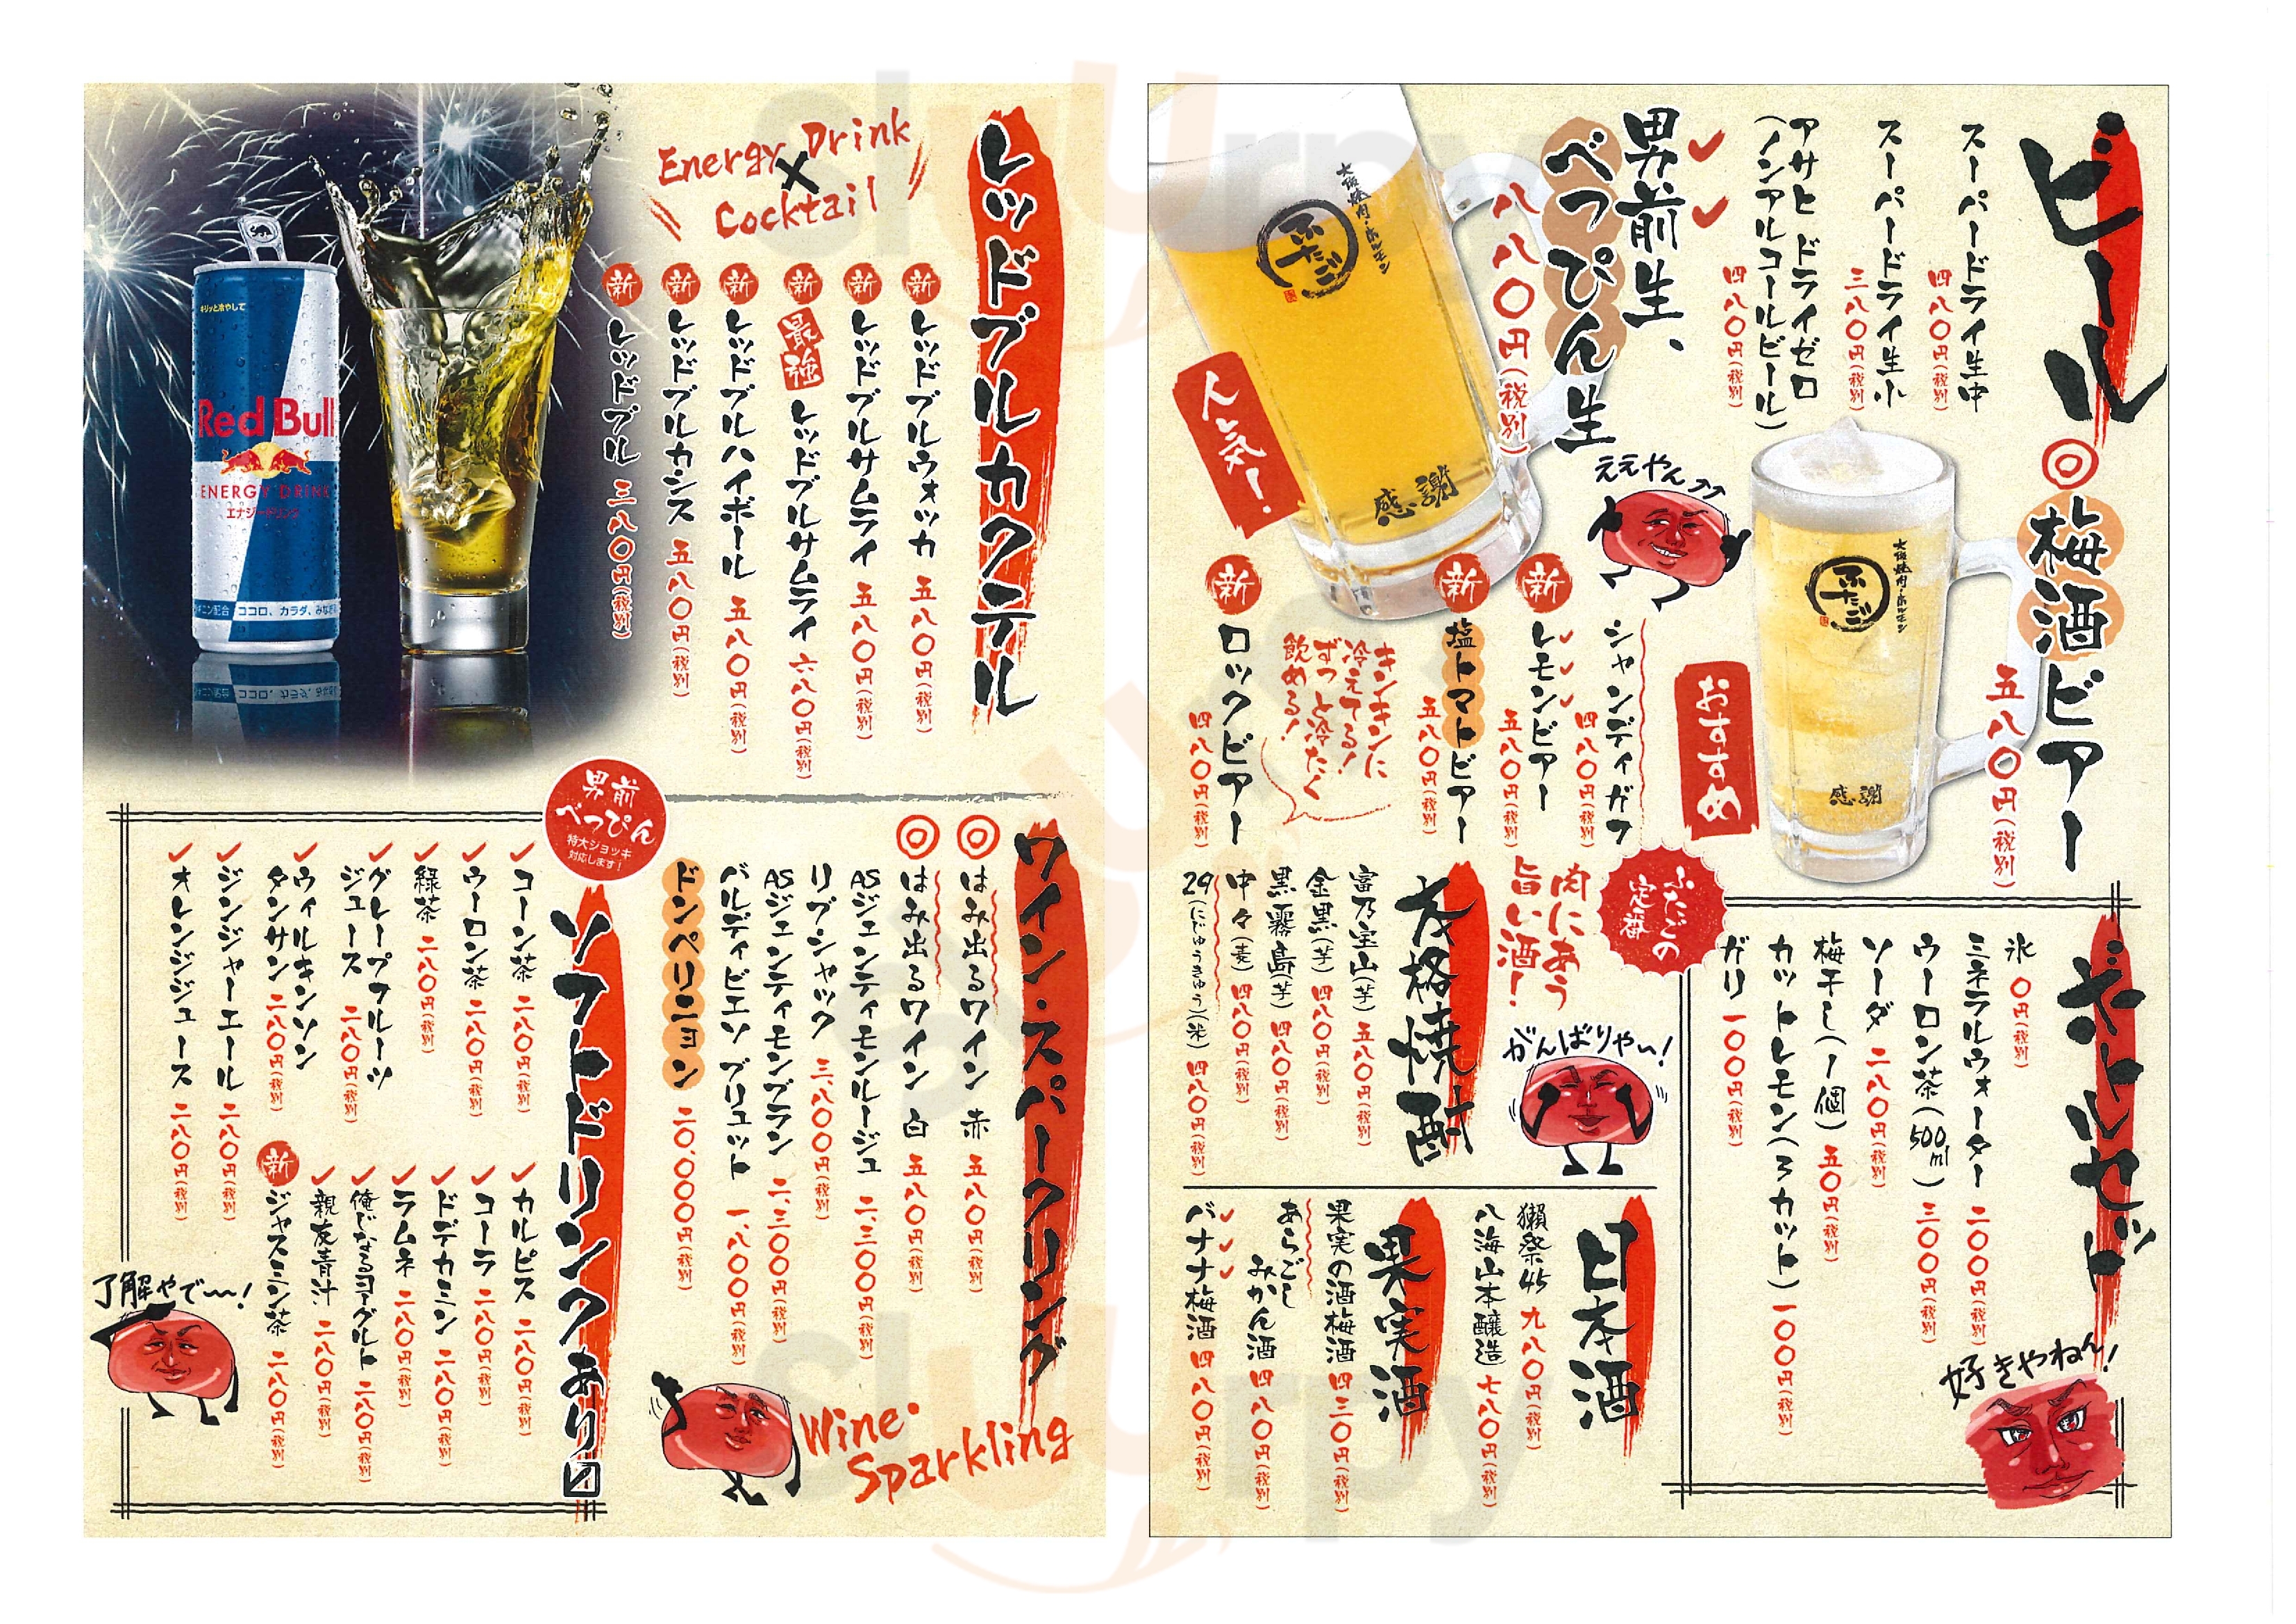 ビール
スーパードライ生中
四八〇円(税別)
スーパードライ生小
三八〇円(税別)
アサヒ ドライゼロ
(ノンアルコールビール)
四八〇円(税別)
男前生、
べっぴん生
八八〇円(税別)
大阪焼肉・ホルモン
ふたご
感謝
人気!
ええやん
◎梅酒ビアー
五八〇円(税別)
大阪焼肉・ホルモン
ふたご
感謝
おすすめ
シャンディガフ
四八〇円(税別)
新
レモンビアー
五八〇円(税別)
新
塩トマトビアー
五八〇円(税別)
キンキンに
冷えてる!
ずっと冷たく
飲める!
新
ロックビアー
四八〇円(税別)
ボトルセット
氷 〇円(税別)
ミネラルウォーター 二〇〇円(税別)
ウーロン茶(500ml) 三〇〇円(税別)
ソーダ 二八〇円(税別)
梅干し(1個) 五〇円(税別)
カットレモン(3カット) 一〇〇円(税別)
ガリ 一〇〇円(税別)
好きやねん!
ふたごの
定番
肉にあう
旨い酒!
がんばりやい!
本格焼酎
富乃宝山(芋) 五八〇円(税別)
金黒(芋) 四八〇円(税別)
黒霧島(芋) 四八〇円(税別)
中々(麦) 四八〇円(税別)
29(にじゅうきゅう)(米) 四八〇円(税別)
日本酒
獺祭45 九八〇円(税別)
八海山本醸造 七八〇円(税別)
果実酒
果実の酒梅酒 四三〇円(税別)
あらごし
みかん酒 四八〇円(税別)
バナナ梅酒 四八〇円(税別)
レッドブルカクテル
Energy Drink
×
Cocktail
新 レッドブルウォッカ 五八〇円(税別)
新 レッドブルサムライ 五八〇円(税別)
新 最強 レッドブルサムライ 六八〇円(税別)
新 レッドブルハイボール 五八〇円(税別)
新 レッドブルカシス 五八〇円(税別)
新 レッドブル 三八〇円(税別)
キリッと冷やして
Red Bull
ENERGY DRINK
エナジードリンク
ココロ、カラダ、みなぎ
ワイン・スパークリング
◎はみ出るワイン 赤 五八〇円(税別)
◎はみ出るワイン 白 五八〇円(税別)
ASジェンティモンルージュ 二、三〇〇円(税別)
リブシャック 三、八〇〇円(税別)
ASジェンティモンブラン 二、三〇〇円(税別)
バルディビエソ ブリュット 一、八〇〇円(税別)
ドンペリニヨン 二〇、〇〇〇円(税別)
Wine・
Sparkling
男前
べっぴん
特大ジョッキ
対応します!
ソフトドリンクあり〼
コーン茶 二八〇円(税別)
ウーロン茶 二八〇円(税別)
緑茶 二八〇円(税別)
グレープフルーツ
ジュース 二八〇円(税別)
ウィルキンソン
タンサン 二八〇円(税別)
ジンジャーエール 二八〇円(税別)
オレンジジュース 二八〇円(税別)
カルピス 二八〇円(税別)
コーラ 二八〇円(税別)
ドデカミン 二八〇円(税別)
ラムネ 二八〇円(税別)
俺じなるヨーグルト 二八〇円(税別)
親友青汁 二八〇円(税別)
新 ジャスミン茶 二八〇円(税別)
了解やで〜!
slurpy
slurpy